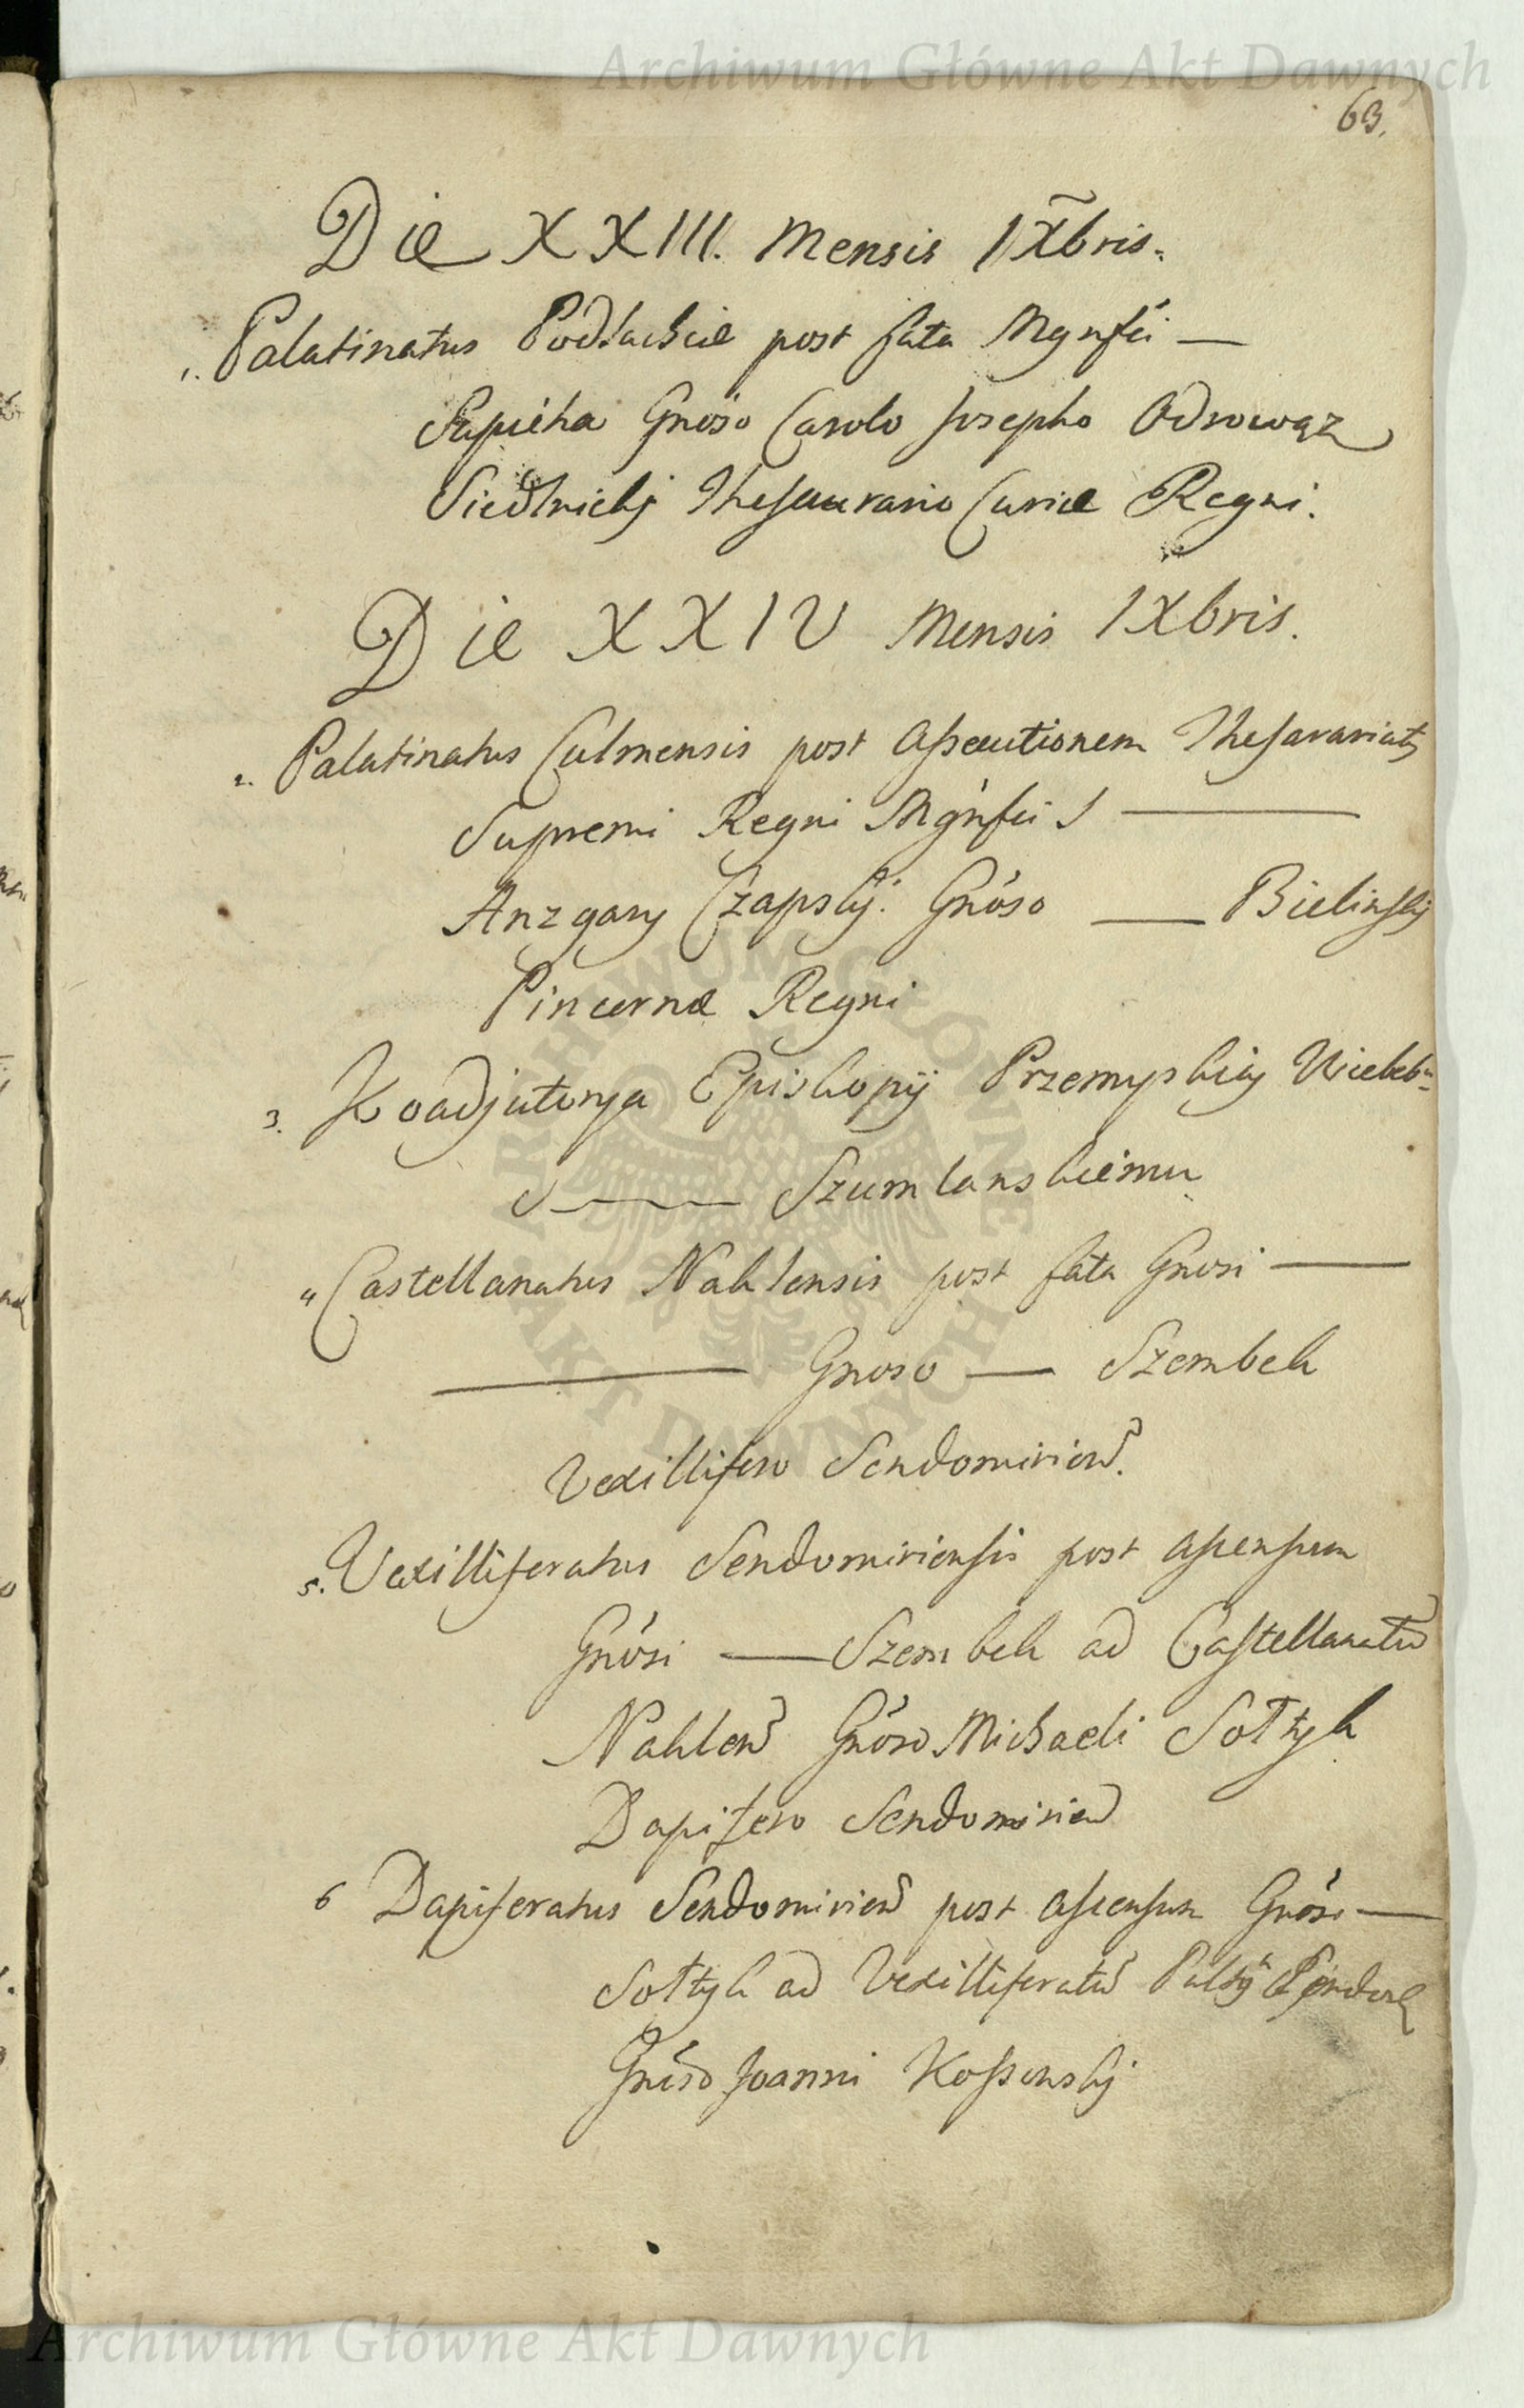 Archiwum Główne Akt Dawnych
63.
Die XXIII. Mensis IXbris.
1. Palatinatus Podlachiæ post fata Mgnfci —
Sapieha Gnoso Carolo Josepho Odrowąz
Siedlnicki Thesaurario Curiæ Regni.
Die XXIV Mensis IXbris.
2. Palatinatus Culmensis post assecutionem
Supremi Regni Mgnfci
Anzgary Czapskij. Gnoso — Bielinskij
Pincernæ Regni
3. Koadjutorya Episkopij Przemyskiey Wieleb
Szumlanskiemu
4 Castellanatus Naklensis post fata Gnosi —
— Gnoso — Szembek
Vexillifero Sendomirien.
5. Vexilliferatus Sendomiriensis post ascensum
Gnosi — Szembek ad Castellanatu
Naklen Gnoso Michaeli Sołtyk
Dapifero Sendomirien
6 Dapiferatus Sendomirien post ascensum Gnosi —
Sołtyk ad Vexilliferatu
Gnoso Joanni Kossowskij
ARCHIWUM GŁÓWNE
AKT DAWNYCH
Archiwum Główne Akt Dawnych